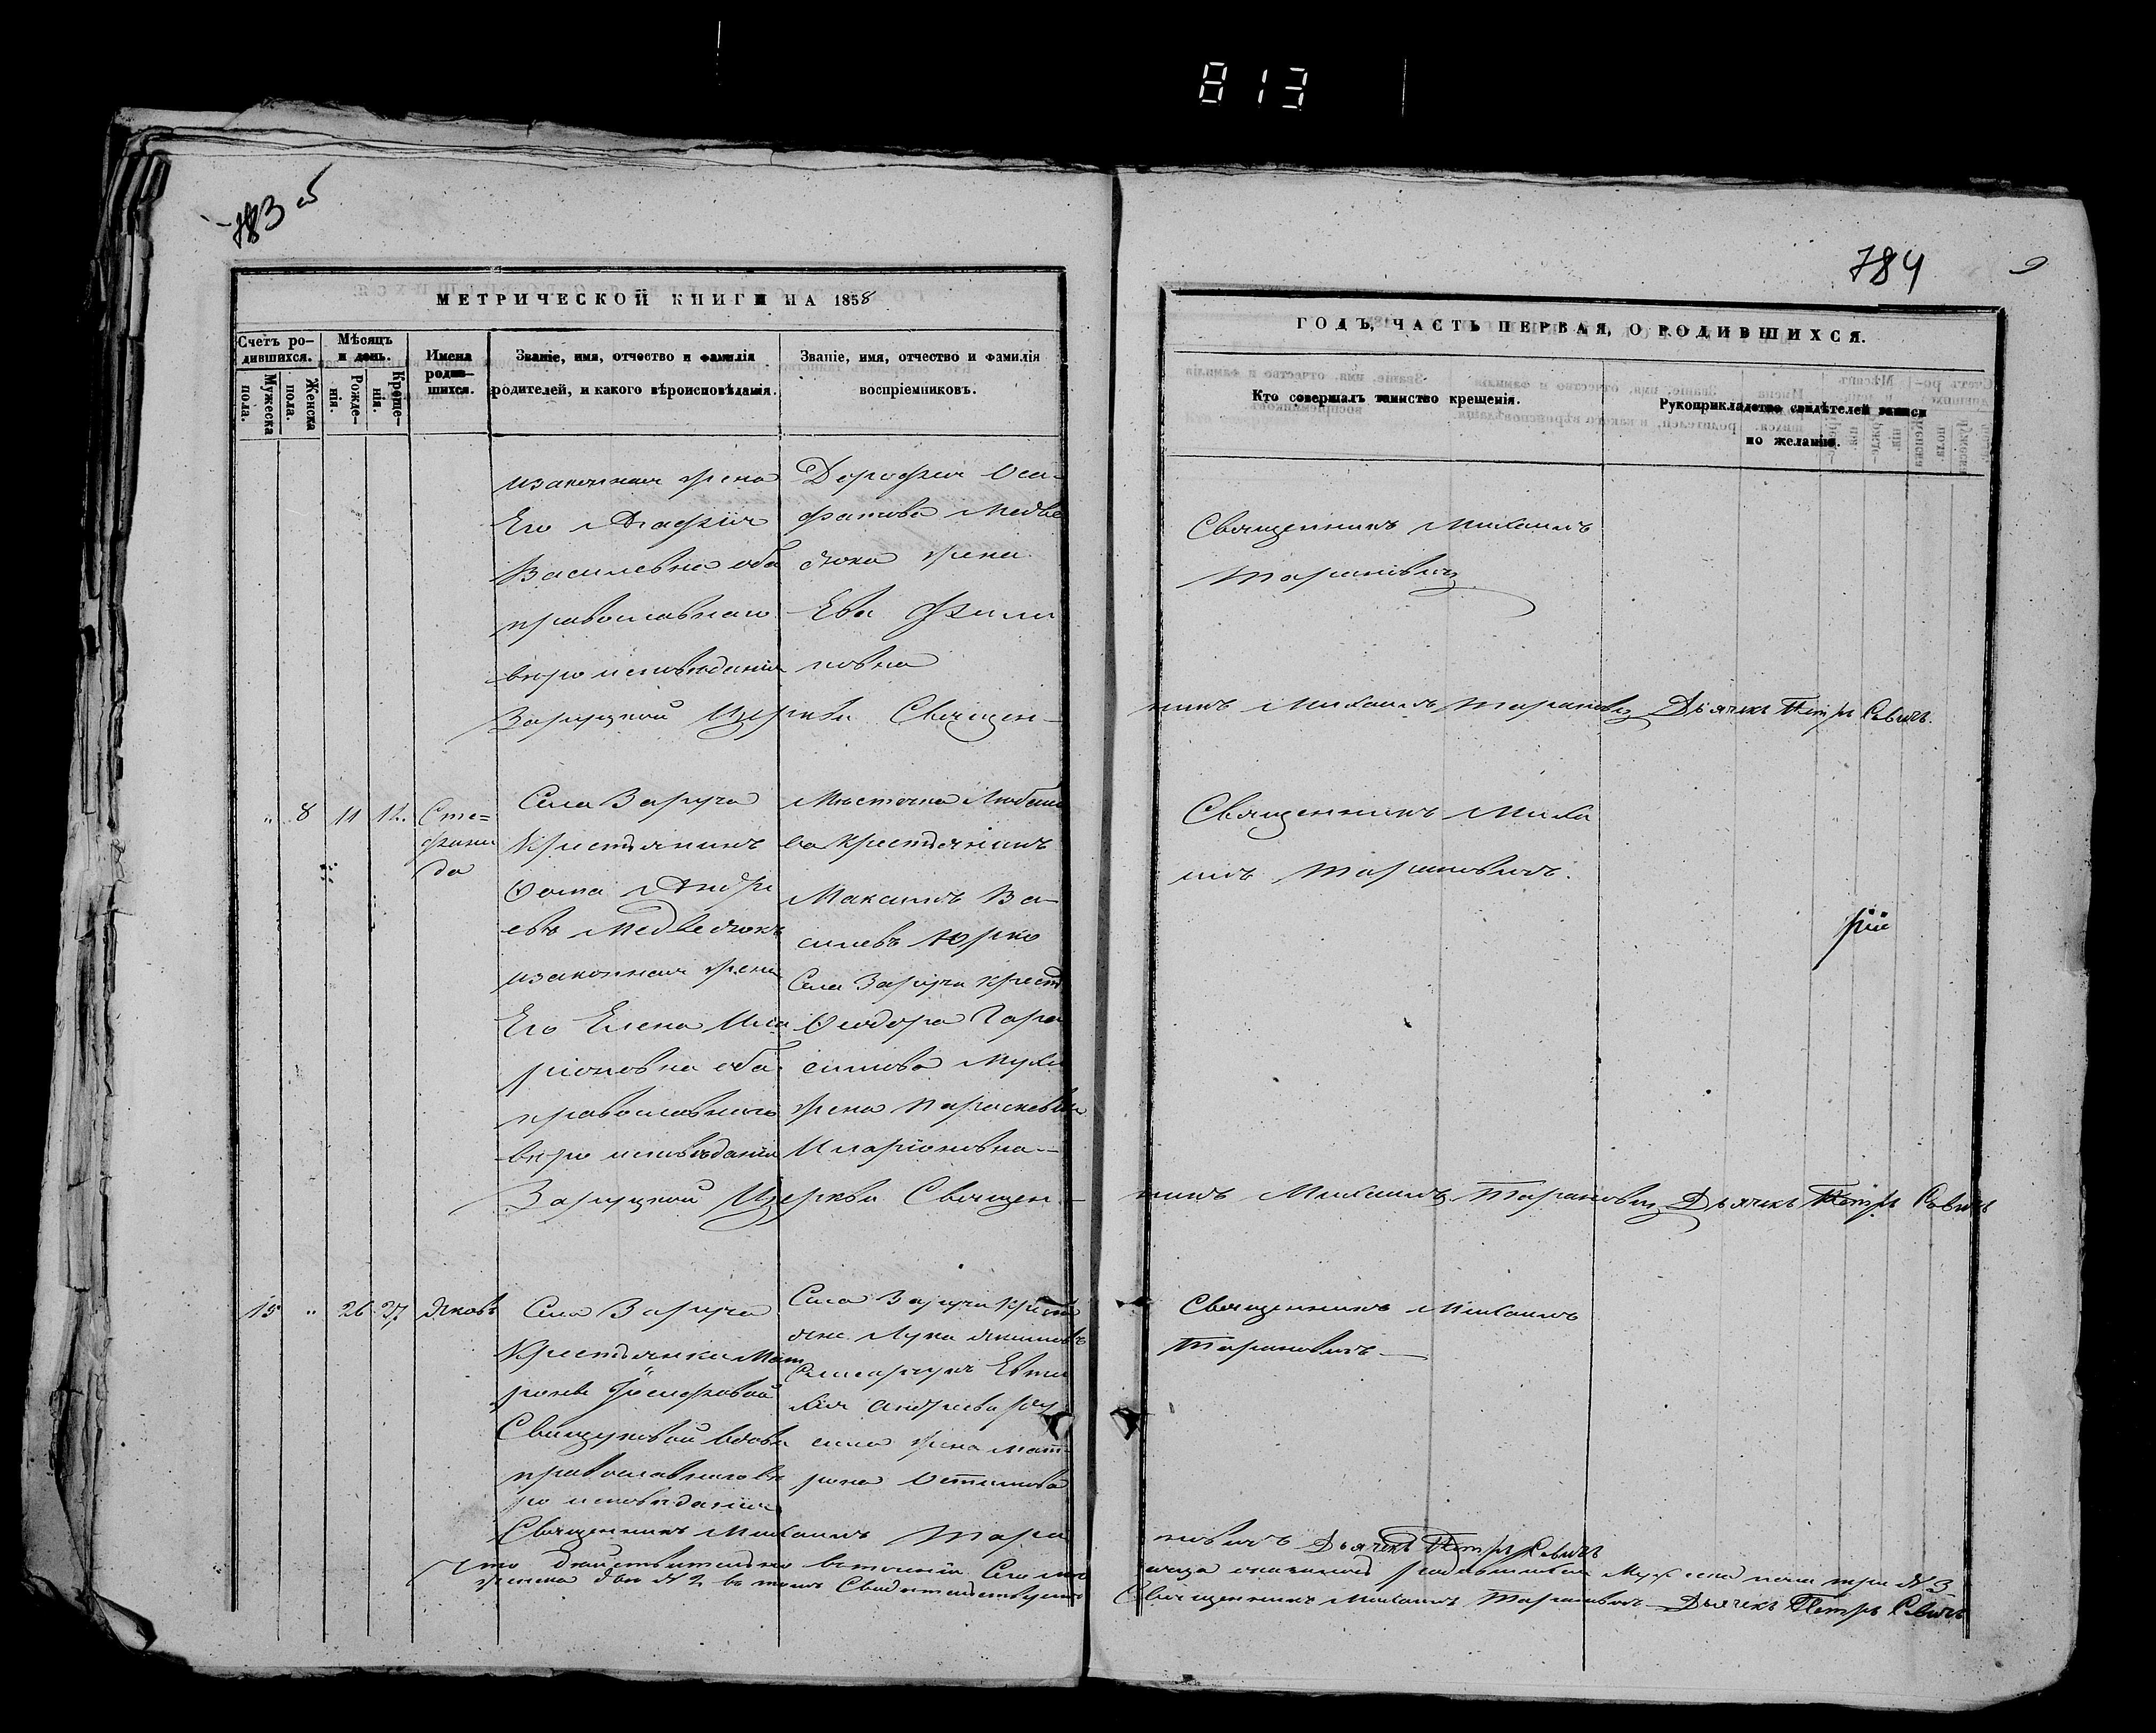 813
783 об
784
9
МЕТРИЧЕСКОЙ КНИГИ НА 1858
ГОДЪ, ЧАСТЬ ПЕРВАЯ, О РОДИВШИХСЯ.
Счетъ ро-
дившихся.
Мужеска
пола.
Женска
пола.
Мѣсяцъ
и день.
Рожде-
нія.
Креще-
нія.
Имена
родив-
шихся.
Званіе, имя, отчество и фамилія
родителей, и какого вѣроисповѣданія.
Званіе, имя, отчество и фамилія
воспріемниковъ.
Кто совершалъ таинство крещенія.
Рукоприкладство свидѣтелей записи
по желанію.
изаконная жена
Его Агафія
Василевна оба
православнаго
вѣроисповѣданія
Дорофея Оси-
фатова Медве
дюка жена
Ева Фили
повна
Священникъ Михаилъ
Тарановичъ
Заруцкой Церкви Священ-
никъ Михаилъ Тарановичъ Дьячекъ Петръ Савичъ.
" 8 11 12.
Сте=
фани
да
Села Заруча
Крестьянинъ
Фома Андре
евъ Медведюкъ
изаконная жена
Его Елена Ила
ріоновна оба
православнаго
вѣроисповѣданія
Мѣстечка Любеша
ва крестьянинъ
Максимъ Ва-
силевъ Юрко
Села Заруча крест
Феодора Гара
симова Мухи
жена Параскевія
Иларіоновна-
Священникъ Миха
илъ Тарановичъ.
Заруцкой Церкви Священ-
никъ Михаилъ Тарановичъ Дьячекъ Петръ Савичъ
15 " 26 27
Яковъ
Села Заруча
Крестьянки Мат
роны Іосифовой
вдовы
православнаго вѣ
роисповѣданія
Села Заруча Крестья
яне. Лука Якимовъ
Евти
хія Андреева
жена Мат-
рона
Священникъ Михаилъ
Тарановичъ-
Священникъ Михаилъ Тара
новичъ Дьячекъ Петръ Савичъ
Что действительно
родившихся Мужеска пола три №3
женска два №2 въ томъ Свидетельствуемъ
Священникъ Михаилъ Тарановичъ Дьячекъ Петръ Савичъ